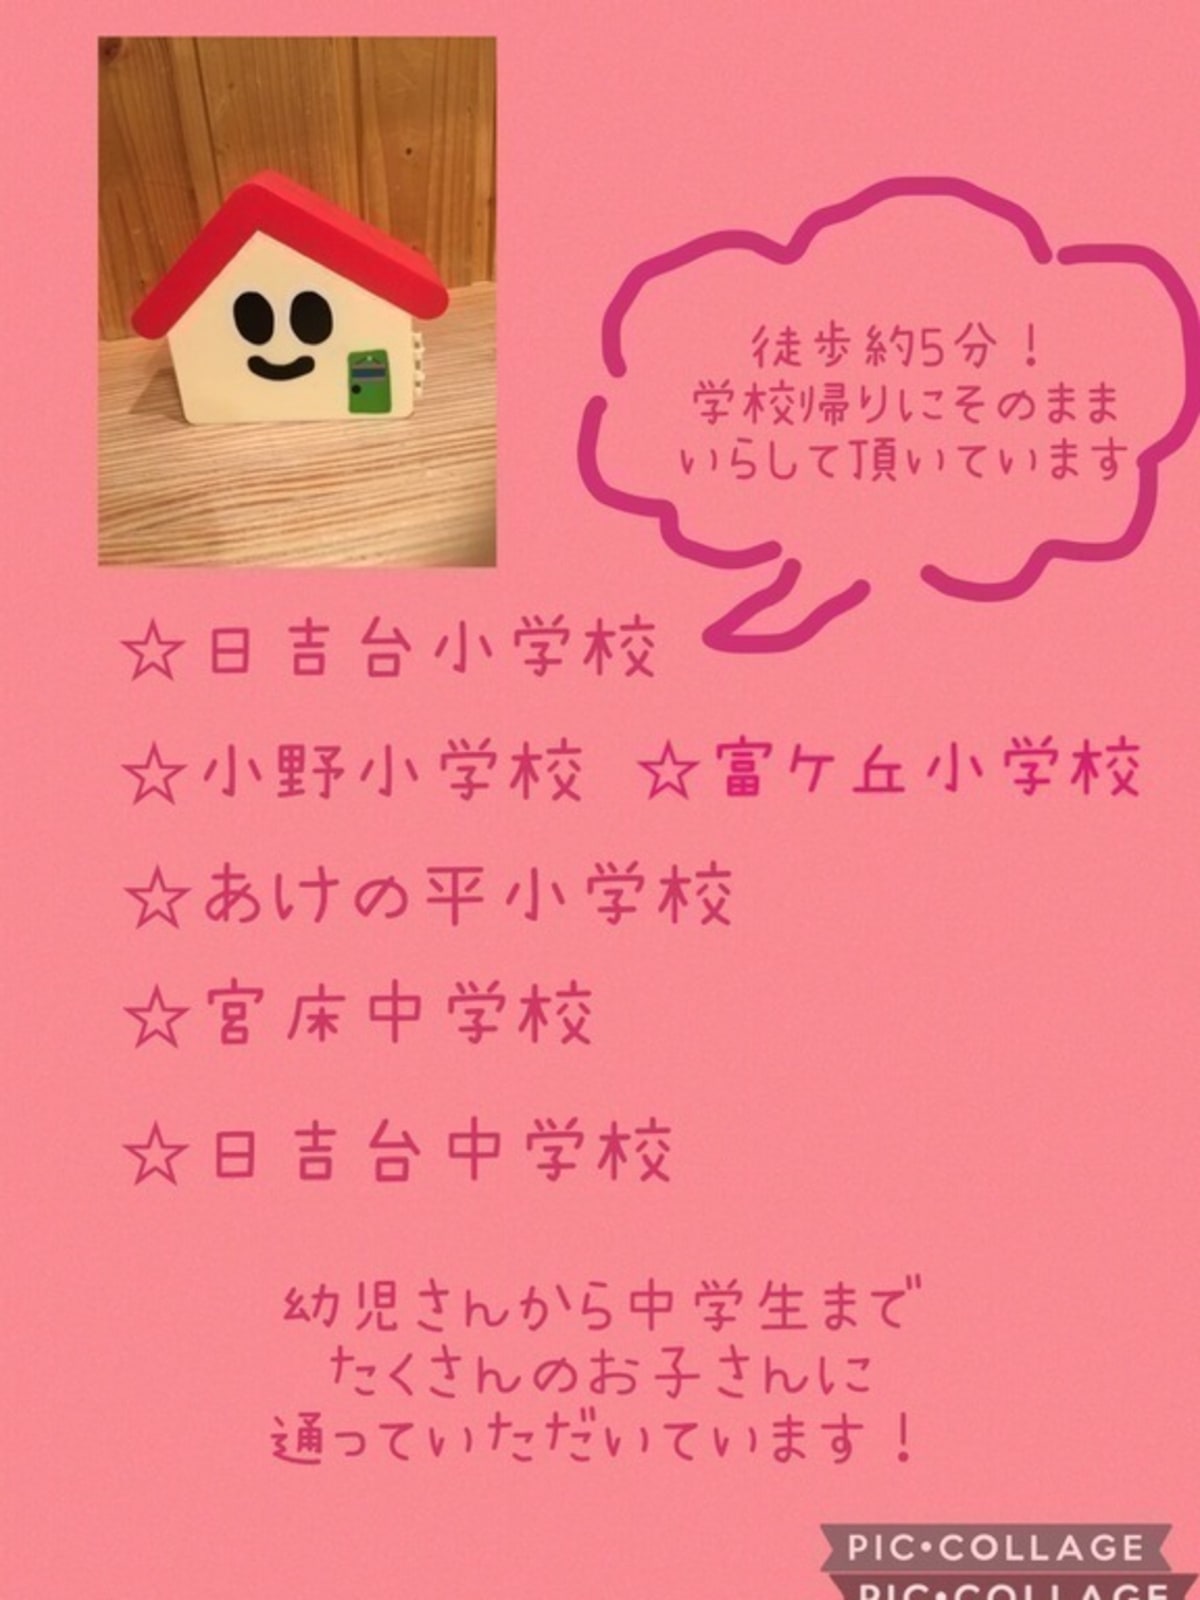 徒歩約5分！
学校帰りにそのまま
いらして頂いています
☆日吉台小学校
☆小野小学校 ☆富ケ丘小学校
☆あけの平小学校
☆宮床中学校
☆日吉台中学校
幼児さんから中学生まで
たくさんのお子さんに
通っていただいています！
PIC•COLLAGE
PIC•COLLAGE